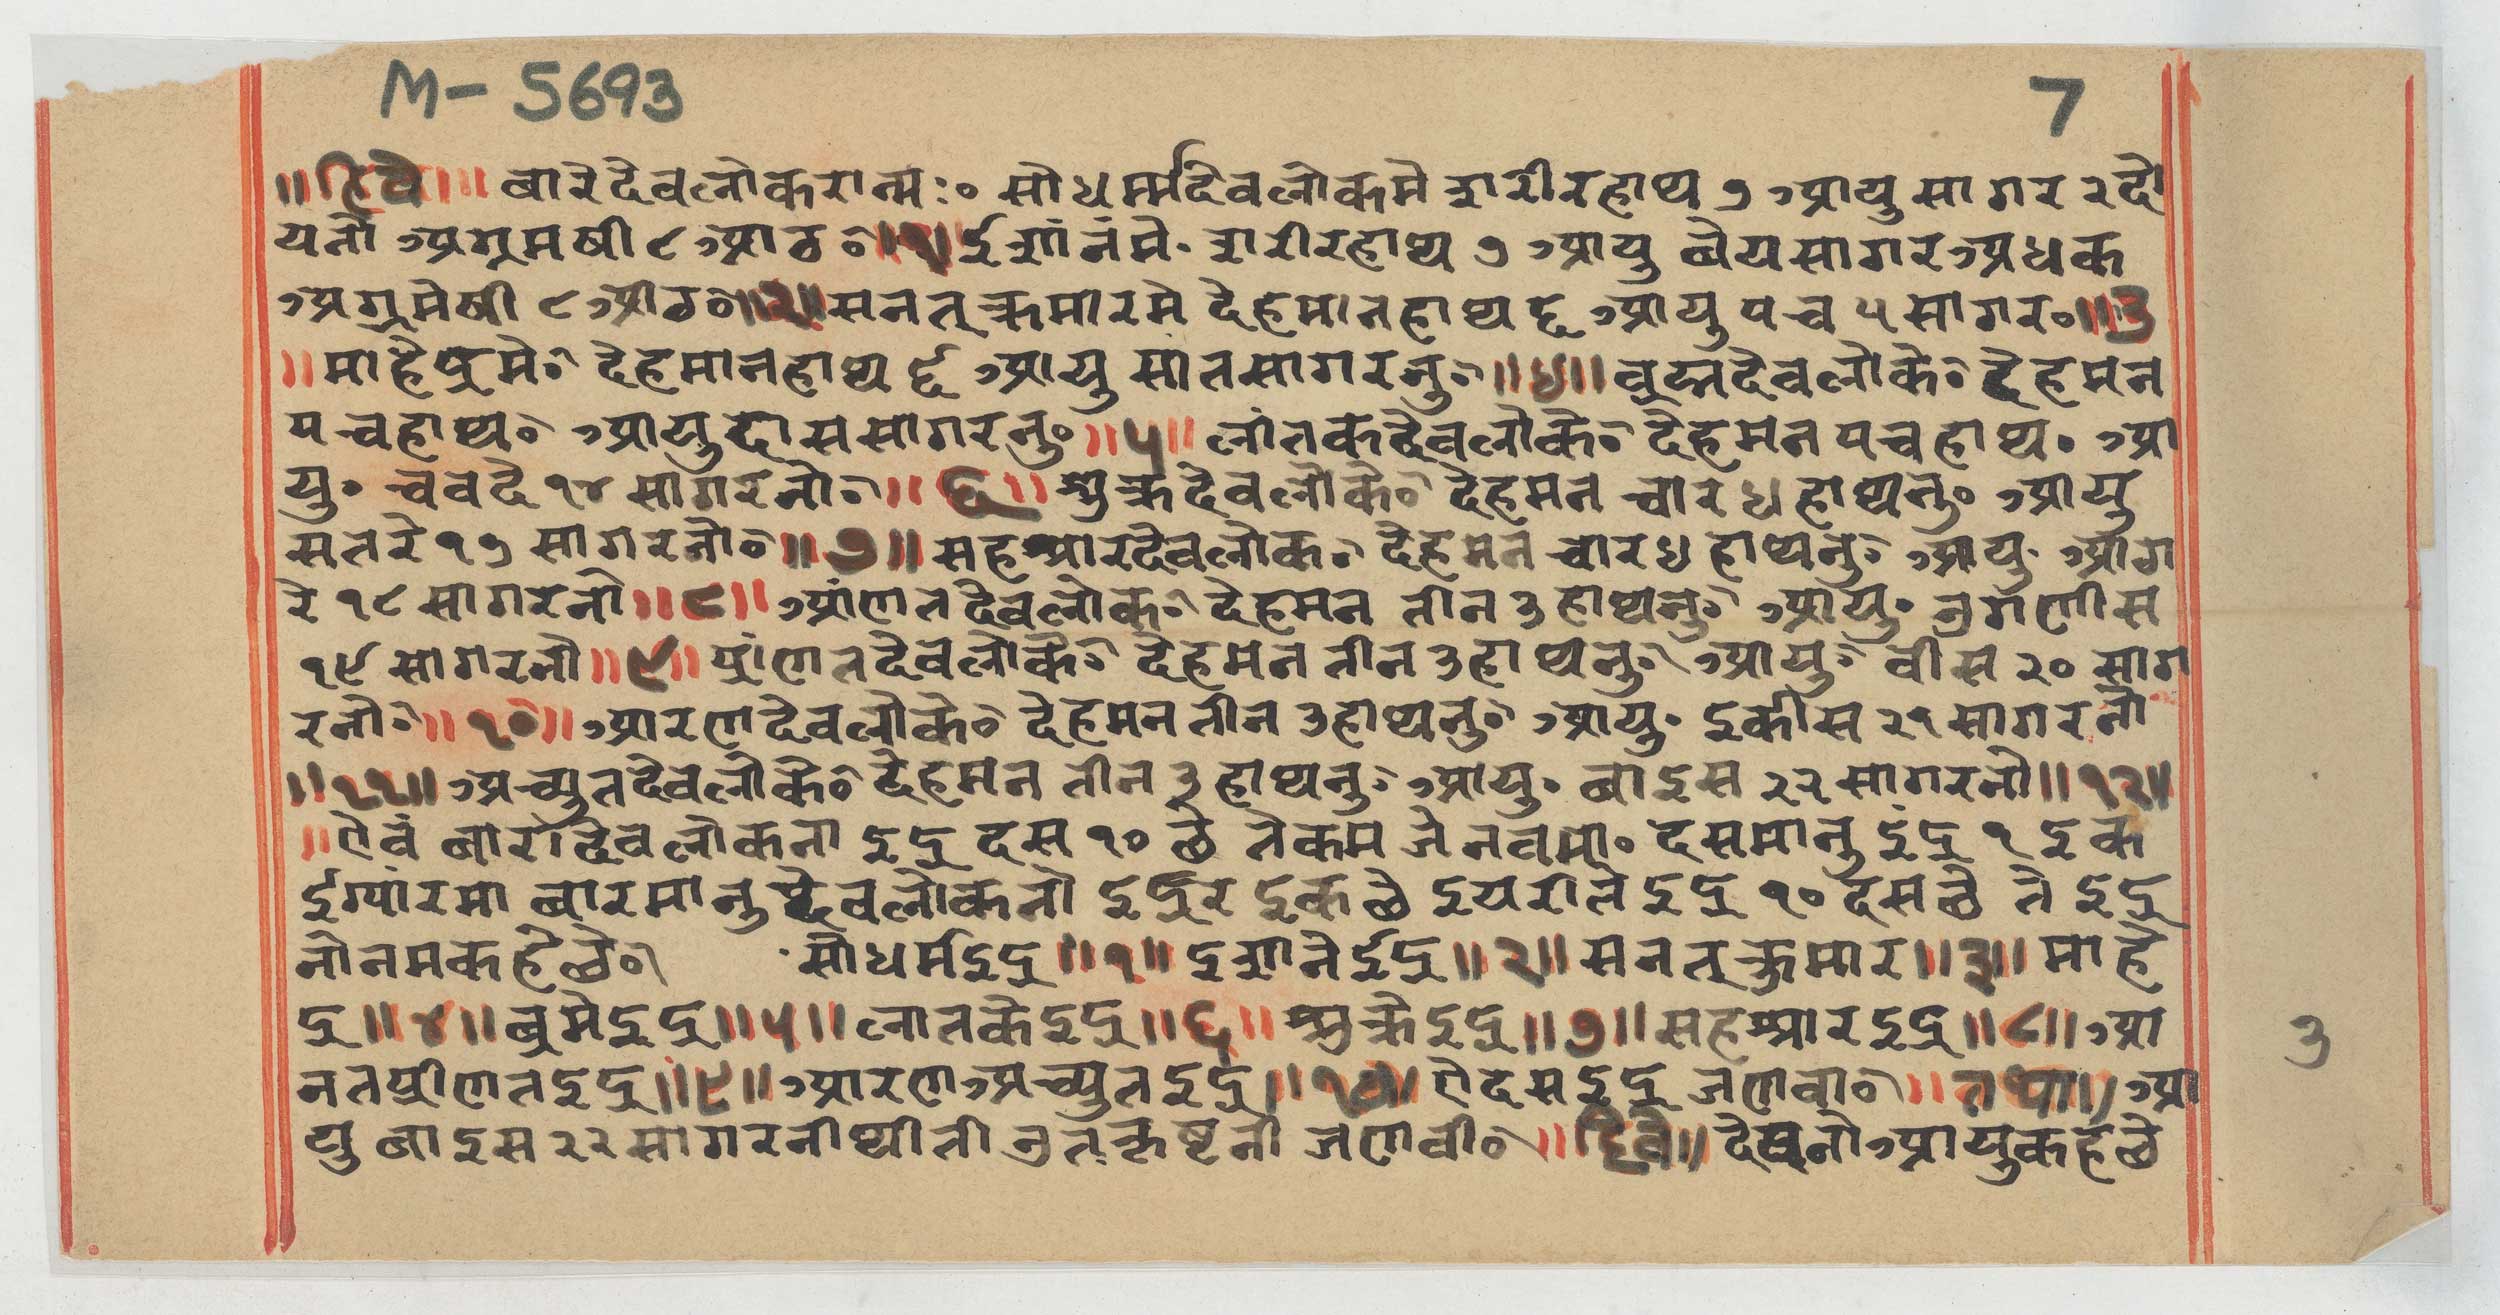 M- 5693
7
॥हिवे॥ बारेदेवलोकरानाम:॰ सौधर्म्मदेवलोकमे शरीरहाथ ७ आयु सागर २ दो
यनो अग्रमषी ८ आठ॰॥२॥ईशांनंमे॰ शरीरहाथ ७ आयु बेयसागरअधक
अग्रमेषी ८ आठ॰॥२॥सनत्कुमारमे देहमानहाथ ६ आयु पच ५ सागर॰॥३
॥माहेंद्रमे॰ देहमानहाथ ६ आयु सातसागरनु॰॥४॥ब्रह्मदेवलोके॰ देहमन
पचहाथ॰ आयु दाससागरनु॰॥५॥लांतकदेवलोके॰ देहमन पचहाथ॰ आ
यु॰ चवदे १४ सागरनो॰॥६॥शुक्रदेवलोके॰ देहमन चार ४ हाथनु॰ आयु
सतरे १७ सागरनो॰॥७॥सहश्रारदेवलोक॰ देहमन चार ४ हाथनु॰ आयु॰ आठा
रे १८ सागरनो॥८॥आंणतदेवलोक॰ देहमन तीन ३ हाथनु॰ आयु॰ उगणीस
१९ सागरनो॥९॥प्रांणतदेवलोके॰ देहमन तीन ३ हाथनु॰ आयु॰ वीस २० साग
रनो॰॥१०॥आरणदेवलोके॰ देहमन तीन ३ हाथनु॰ आयु॰ इकीस २१ सागरनो
॥११॥अच्युतदेवलोके॰ देहमन तीन ३ हाथनु॰ आयु॰ बाइस २२ सागरनो॥१२॥
॥ऐवं बारादेवलोकना इद्र दस १० छे तेकम जेनवमा॰ दसमानु इंद्र १ इक
ईग्यांरमा बारमानु देवलोकनो इद्र इकछे इयरीते इद्र १० दसछे ते इद्र
नोनमकहेछे॰ सौधर्मइद्र॥१॥इशानेईद्र॥२॥सनत्कुमार॥३॥माहे
द्र॥४॥ब्रमेइद्र॥५॥लातकेइद्र॥६॥शुक्रेइद्र॥७॥सहश्रारइद्र॥८॥आ
नतप्रीणतइद्र॥९॥आरणअच्युतइद्र॥१०॥ऐ दसइद्र जणवा॰॥तथा॥आ
यु बाइस २२ सागरनीथीती उतकृष्टनी जणवी॰॥हिवे॥देवनोआयुकहेछे
3